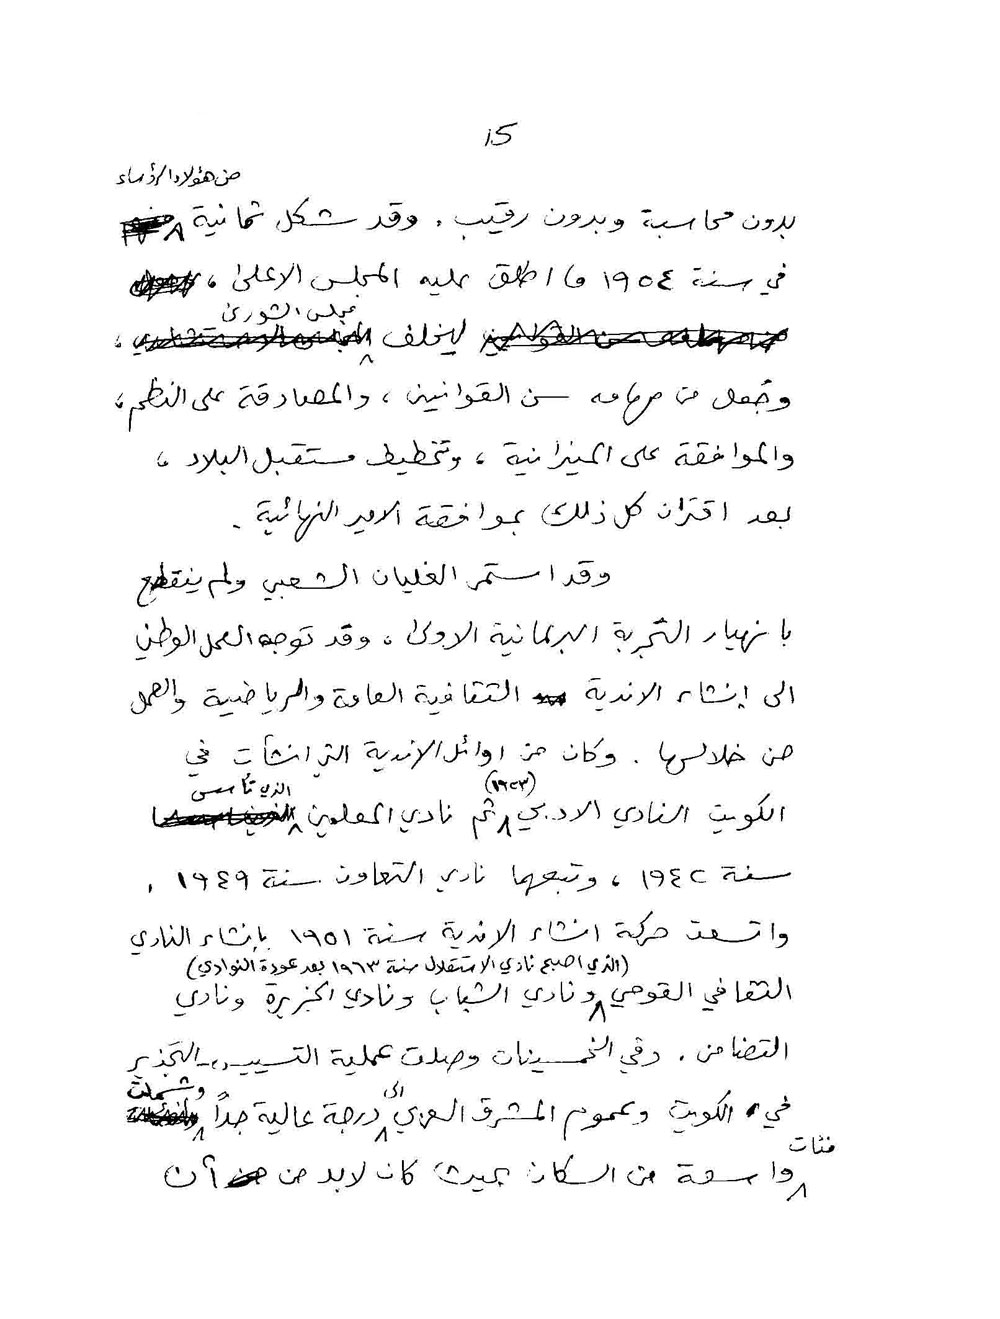 15
من هؤلاء الرؤساء
بدون محاسبة وبدون رقيب . وقد شكل ثمانية
في سنة ١٩٥٤ ما اطلق عليه المجلس الاعلى ،
مجلس الشورى
ليخلف ،
وجُعل من مهامه سن القوانين ، والمصادقة على النظم ،
والموافقة على الميزانية ، وتخطيط مستقبل البلاد ،
بعد اقتران كل ذلك بموافقة الامير النهائية .
وقد استمر الغليان الشعبي ولم ينقطع
بانهيار التجربة البرلمانية الاولى ، وقد توجه العمل الوطني
الى إنشاء الاندية الثقافية العامة والرياضية والعمل
من خلالها . وكان من اوائل الاندية التي انشأت في
(١٩٢٣) الذي تأسس
الكويت النادي الادبي ثم نادي المعلمين
سنة ١٩٤٢ ، وتبعهما نادي التعاون سنة ١٩٤٩ .
واتسعت حركة انشاء الاندية سنة ١٩٥١ بإنشاء النادي
(الذي اصبح نادي الاستقلال سنة ١٩٦٣ بعد عودة النوادي)
الثقافي القومي ونادي الشباب ونادي الجزيرة ونادي
التضامن . وفي الخمسينات وصلت عملية التسييس والتجذير
الى وشملت
في الكويت وعموم المشرق العربي درجة عالية جداً
فئات
واسعة من السكان بحيث كان لابد من أن